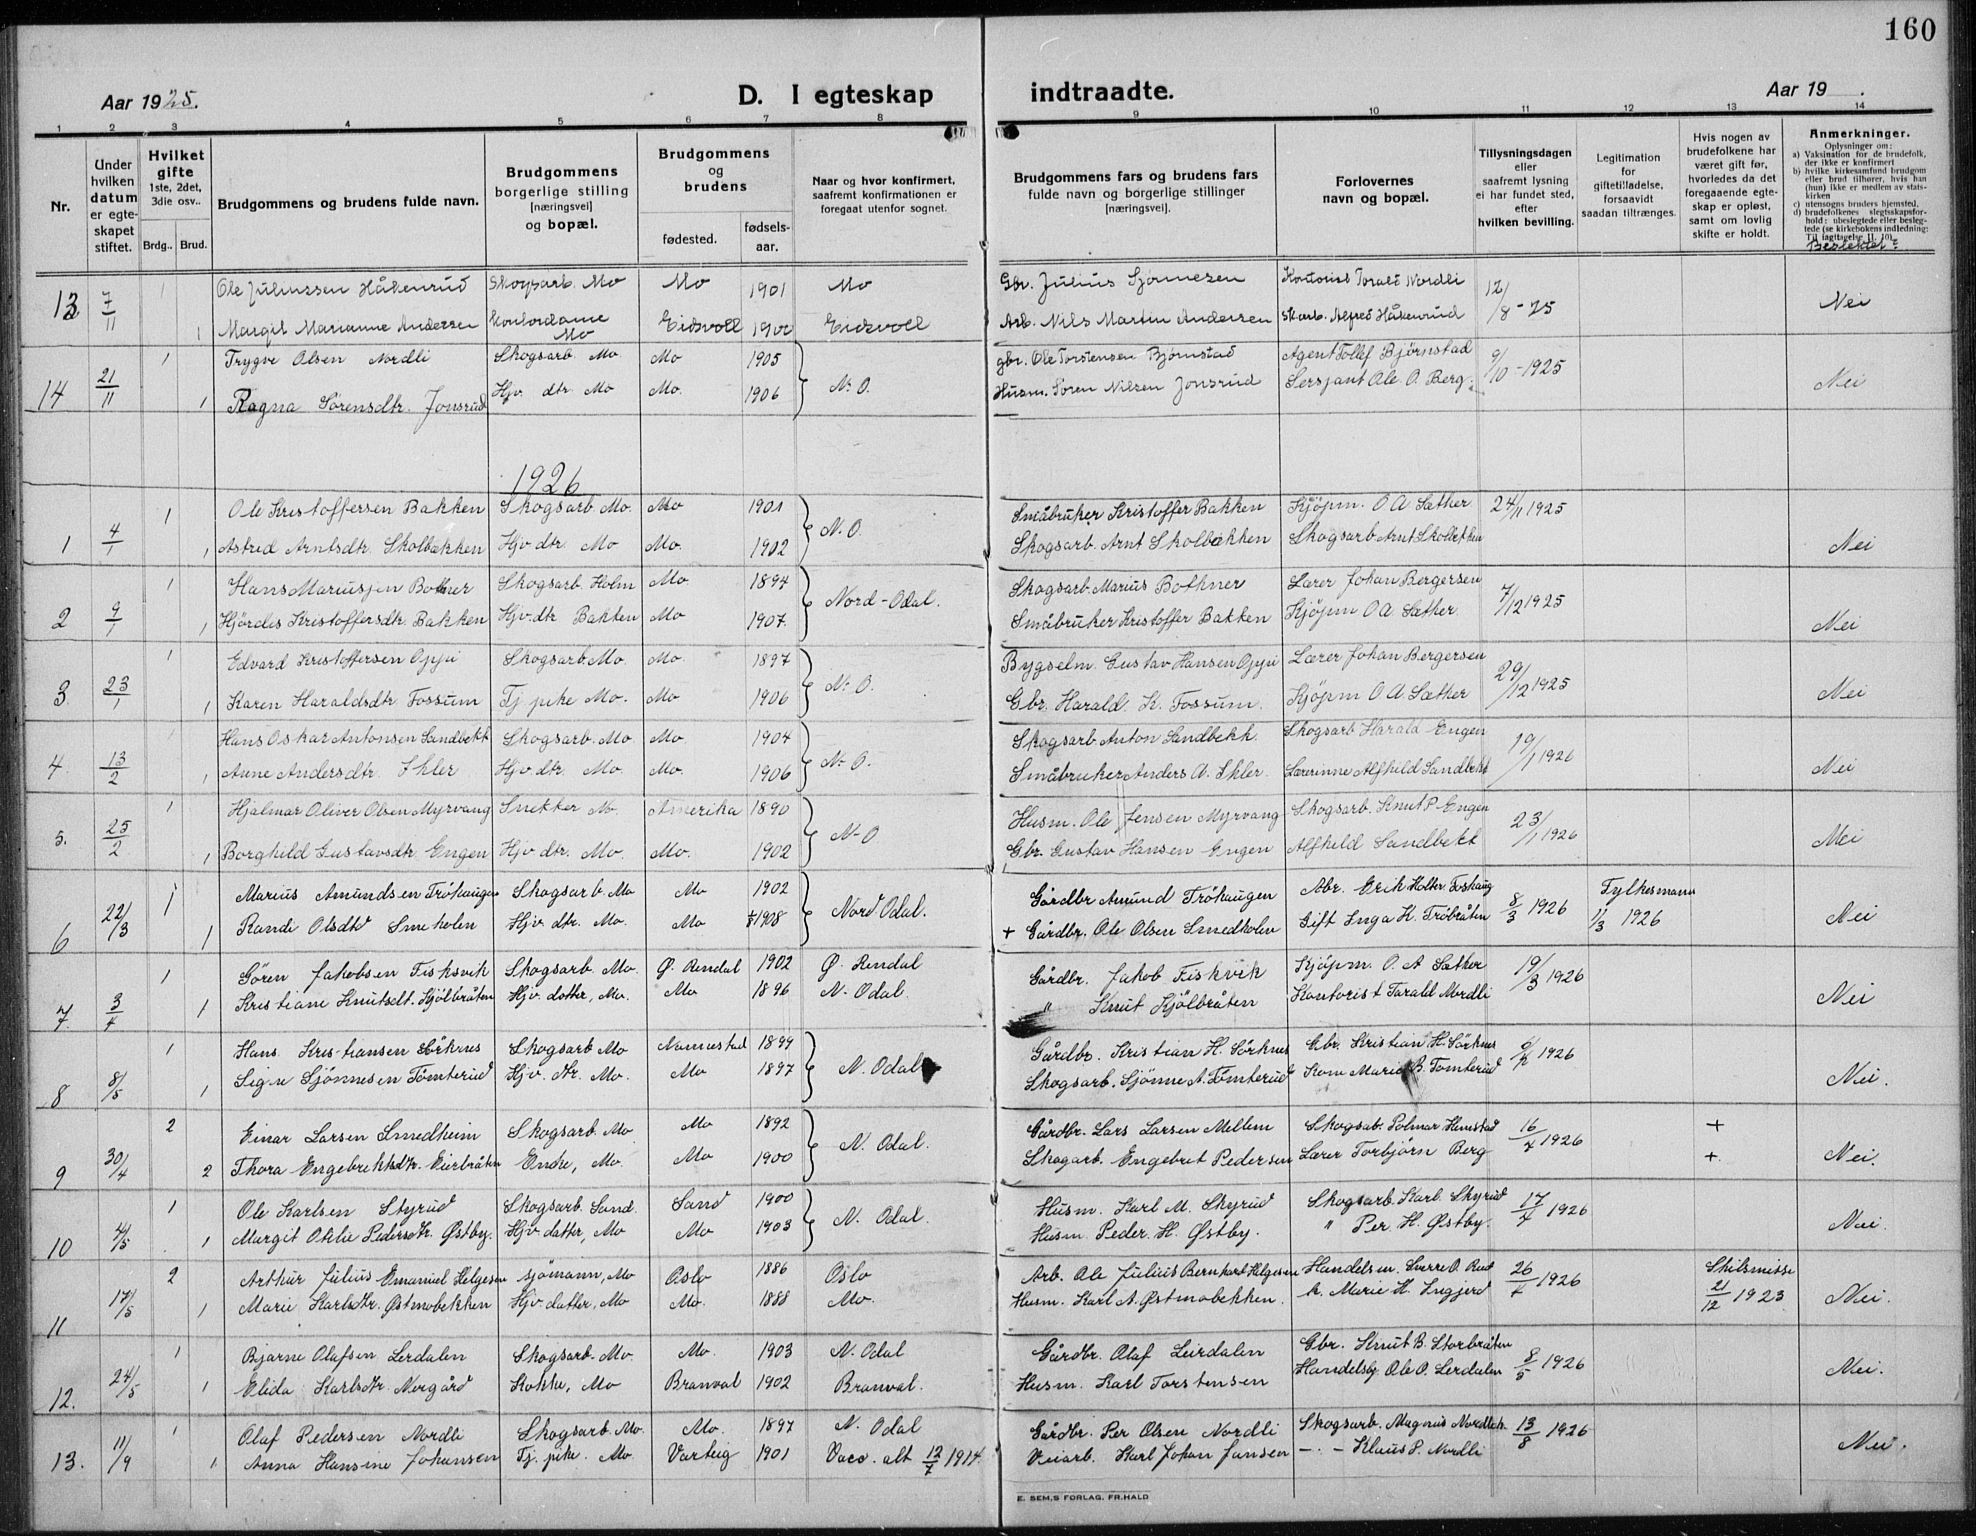 160
Aar 1925.
D. I egteskap indtraadte.
Aar 19 .
1 2 3 4 5 6 7 8 9 10 11 12 13 14
Nr.
Under hvilken datum er egteskapet stiftet.
Hvilket gifte 1ste, 2det, 3die osv..
Brdg.. Brud.
Brudgommens og brudens fulde navn.
Brudgommens borgerlige stilling [næringsvei] og bopæl.
Brudgommens og brudens
fødested. fødselsaar.
Naar og hvor konfirmert, saafremt konfirmationen er foregaat utenfor sognet.
Brudgommens fars og brudens fars fulde navn og borgerlige stillinger [næringsvei].
Forlovernes navn og bopæl.
Tillysningsdagen eller saafremt lysning ei har fundet sted, efter hvilken bevilling.
Legitimation for giftetilladelse, forsaavidt saadan tiltrænges.
Hvis nogen av brudefolkene har været gift før, hvorledes da det foregaaende egteskap er opløst, samt om lovlig skifte er holdt.
Anmerkninger.
Oplysninger om:
a) Vaksination for de brudefolk, der ikke er konfirmert
b) hvilke kirkesamfund brudgom eller brud tilhører, hvis han (hun) ikke er medlem av statskirken
c) utensogns bruders hjemsted.
d) brudefolkenes slegtsskapsforhold: ubeslegtede eller beslegtede (se kirkebokens indledning: Til iagttagelse II. 10).
Beslektet?
13 7/11 1 Ole Juliussen Håkenrud Skogsarb. Mo Mo 1901 Mo Gbr. Julius Sjønnesen Kontorist Torald Nordli 12/8-25 Nei
1 Margit Marianne Andersen Kontordame Mo Eidsvoll 1900 Eidsvoll Arb. Nils Martin Andersen Skarb. Alfred Håkenrud
14 21/11 1 Trygve Olsen Nordli Skogsarb. Mo Mo 1905 N. O. gbr. Ole Torstensen Bjørnstad Agent Tollef Bjørnstad 9/10-1925 Nei
1 Ragna Sørensdtr. Jonsrud Hjv. dtr Mo Mo. 1906 Husm. Søren Nilsen Jonsrud Sersjant Ole O. Berg.
1926
1 4/1 1 Ole Kristoffersen Bakken Skogsarb Mo. Mo 1901 N. O. Småbruker Kristoffer Bakken Kjöpm. O A Sæther 24/11 1925 Nei
1 Astrid Arntsdtr. Skolbekken Hjv dtr. Mo Mo. 1902 Skogsarb. Arnt Skolbekken Skogsarb Arnt Skolbekken
2 9/1 1 Hans Mariussen Bothner Skogsarb. Holm Mo 1894 Nord-Odal. Skogsarb. Marius Bothner Lærer Johan Bergersen 7/12 1925 Nei
1 Hjördis Kristoffersdtr. Bakken Hjv. dtr Bakken Mo 1907. Småbruker Kristoffer Bakken Kjöpm O A Sæther
3 23/1 1 Edvard Kristoffersen Opjii Skogsarb. Mo. Mo. 1897 N. O. Bygselm. Gustav Hansen Lærer Johan Bergersen 29/12 1925 Nei
1 Karen Haraldsdtr Fossum Tj pike Mo. Mo 1906 Gbr. Harald. K. Fossum. Kjöpm O A Sæther
4 13/2 Hans Oskar Antonsen Sandbekk Skogsarb. Mo. Mo 1904 N. O. Skogsarb Anton Sandbekk. Skogsarb Harald Engen 19/1 1926 Nei
1 Anne Andersdtr. Ihler Hjv. dtr. Mo. Mo. 1906 Småbruker Anders A. Ihler. Lærerinne Alfhild Sandbekk
5. 25/2 1 Hjalmar Oliver Olsen Myrvang Snekker Mo. Amerika 1890 N. O Husm. Ole Jensen Myrvang Skogsarb. Knut P Engen 23/1 1926 Nei
1 Borghild Gustavsdtr. Engen Hjv dtr. Mo. Mo. 1902 Gbr. Gustav Hansen Engen Alfhild Sandbekk
6 22/3 1 Marius Amundsen Tröhaugen Skogsarb. Mo Mo 1902 Nord Odal. Gårdbr Amund Tröhaugen Erik Holter 8/3 1926 Fylkesmann Nei
1 Randi Olsdtr Smeholen Hjv. dtr. Mo. Mo 1908 + Gårdbr. Ole Olsen Smedholen Gift Inga K. Tröbråten 11/3 1926
7. 3/4 1 Gören Jakobsen Fiskvik Skogsarb. Mo. Ø. Rendal 1902 Ø. Rendal Gårdbr. Jakob Fiskvik Kjöpm. O. A Sæther 19/3 1926 Nei
1 Kristiane Knutsdt. Kjölbråten Hjv. datter, Mo. Mo 1896 N. Odal. " Knut Kjölbråten Kontorist Tarald Nordli
8 8/5 1 Hans Kristiansen Sörknes Skogsarb Mo Nannestad 1899 N. Odal Gårdbr. Kristian H. Sörknes Gbr. Kristian H. Sörknes 1926 Nei.
1 Signe Sjönnesen Tömterud Hjv. dtr. Mo. Mo 1897 Skogsarb. Sjönne A. Tömterud Kone Marie B. Tomterud
9 30/4 2 Einar Larsen Smedheim Skogsarb. Mo Mo 1892 N. Odal. Gårdbr. Lars Larsen Mellem Skogsab. Polmar Harstad 16/4 1926 + Nei.
2 Thora Engebrektsdtr. Eierbråten Enke, Mo. Mo 1900 Skogarb. Engebret Pedersen Lærer Torbjörn Berg +
10 4/5 1 Ole Karlsen Styrud Skogsarb. Sand. Sand 1900 N. Odal. Husm. Karl M. Skyrud Skogsarb. Karl. Skyrud 17/4 1926 Nei.
1 Margit Otilie Pedersdtr. Østby. Hjv datter, Mo Mo 1903 Husm. Peder. H. Østby. " Per H. Østby.
11 17/5 2 Arthur Julius Emanuel Helgesen sjömann, Mo Oslo 1886 Oslo Arb. Ole Julius Bernhard Helgesen Handelsm. Sverre O. Rud 26/4 1926 Skilsmisse Nei.
1 Marie Karlsdtr. Østmobekken Hjv. datter, Mo Mo. 1888 Mo. Husm. Karl A. Østmobekken. k. Marie H. Ingjerd 21/12 1923
12. 24/5 1 Bjarne Olafsen Lerdalen Skogsarb. Mo. Mo. 1903 N. Odal Gårdbr. Olaf Leirdalen Gbr. Knut B. Storbråten 8/5 1926 Nei.
1 Elida Karlsdtr. Nergård Kokke, Mo Branval 1902 Branval. Husm. Karl Torstensen Handelsb. Ole O. Lerdalen
13. 11/9 1 Olaf Pedersen Nordli Skogsarb. Mo. Mo. 1897 N. Odal Gårdbr. Per Olsen Nordli Skogsarb. Magnus 13/8 1926 Nei.
1 Anna Hansine Johansen Tj. pike. Mo. Varteig 1901 Vacc. alt 12/7 1914. Veiarb. Karl Johan Jansen - " - Klaus P. Nordli
E. SEM.S FORLAG. FR.HALD